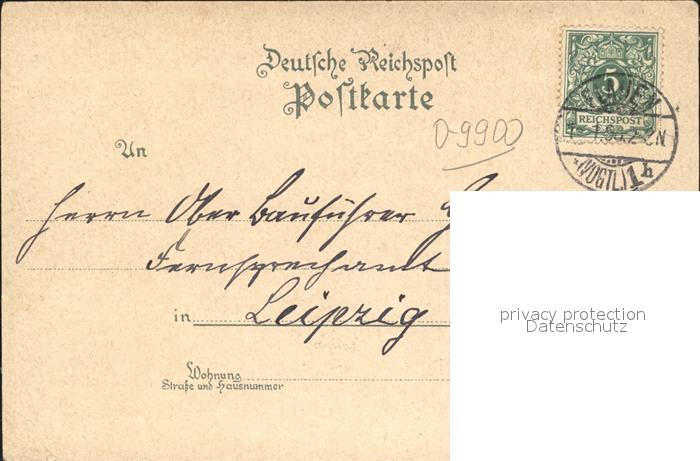 Deutsche Reichspost
Postkarte
5
REICHSPOST
D-9900
(VOGTL.) 1h
An
Herrn Ober Bauführer
Fernsprechamt
in Leipzig
privacy protection
Datenschutz
Wohnung
Straße und Hausnummer